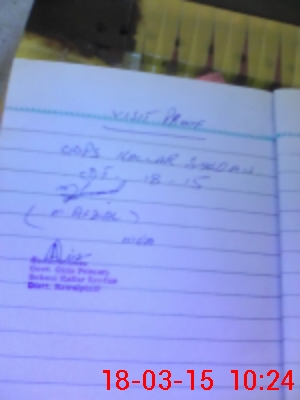 VISIT PROOF
GGPS KALLAR SYEDAN
18 - 15
MEA
Govt. Girls Primary
School Kallar Syedan
Distt: Rawalpindi
18-03-15 10:24